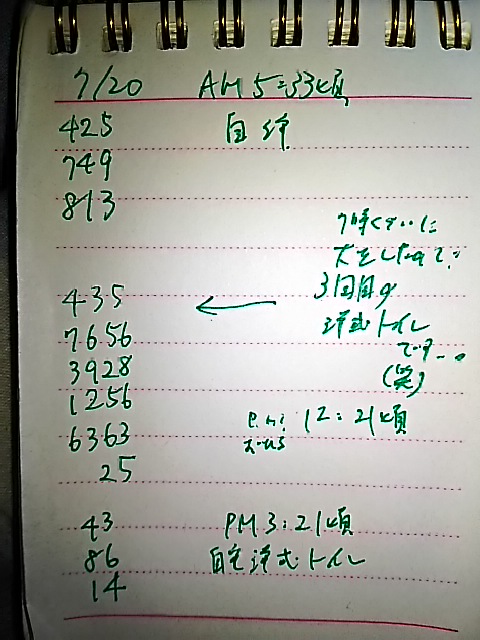 7/20 AM 5:33頃
425 自
749
813
7時くらいに
大をしたので
435 ← 3回目の
7656 洋式トイレ
3928 です
1256 (笑)
6363 12:21頃
25
43 PM 3:21頃
86 自宅洋式トイレ
14